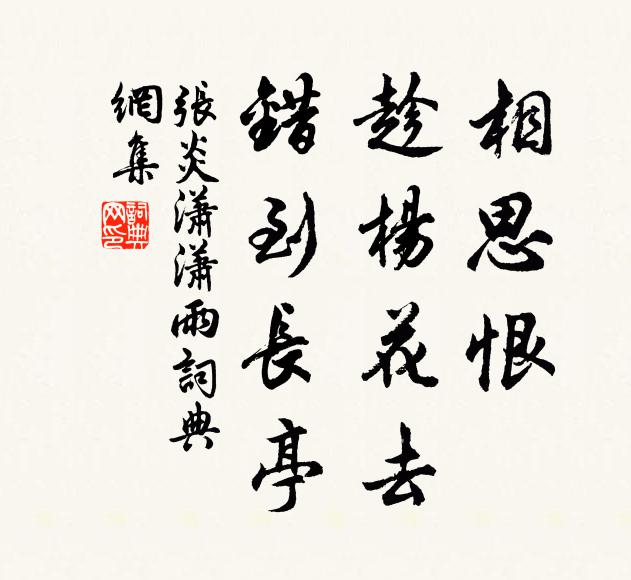 相思恨
趁楊花去
錯到長亭
張炎瀟瀟雨詞典
網集
詞典
网印